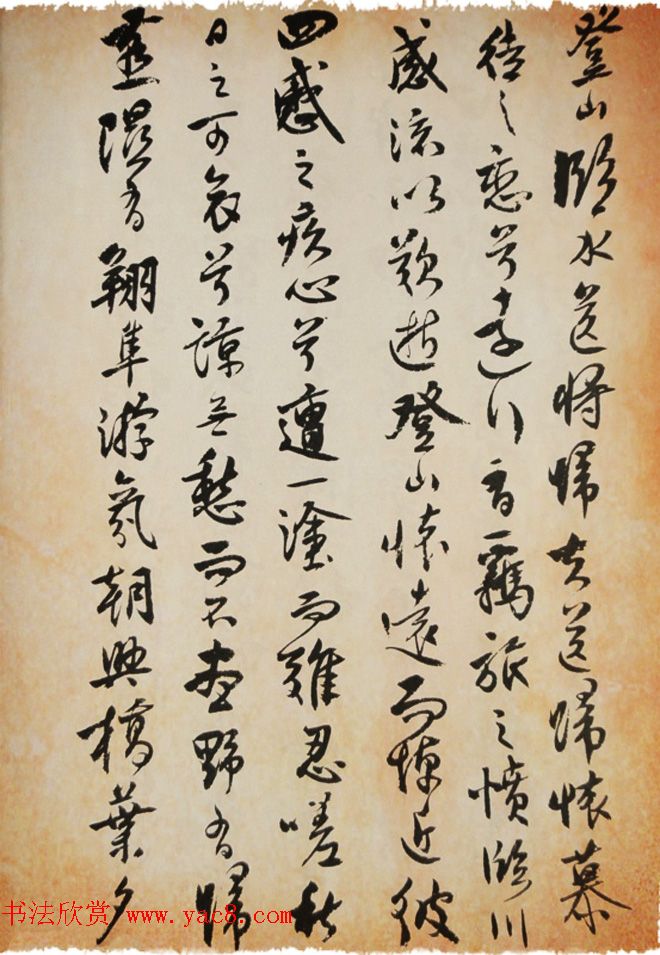 登山臨水送將歸夫送歸懷慕
徒之戀兮遠行有羈旅之憤臨川
感流以歎逝登山懷遠而悼近彼
四慼之疚心兮遭一塗而難忍嗟秋
日之可哀兮諒無愁而不盡野有歸
燕隰有翔隼游氛朝興槁葉夕
书法欣赏 www.yac8.com